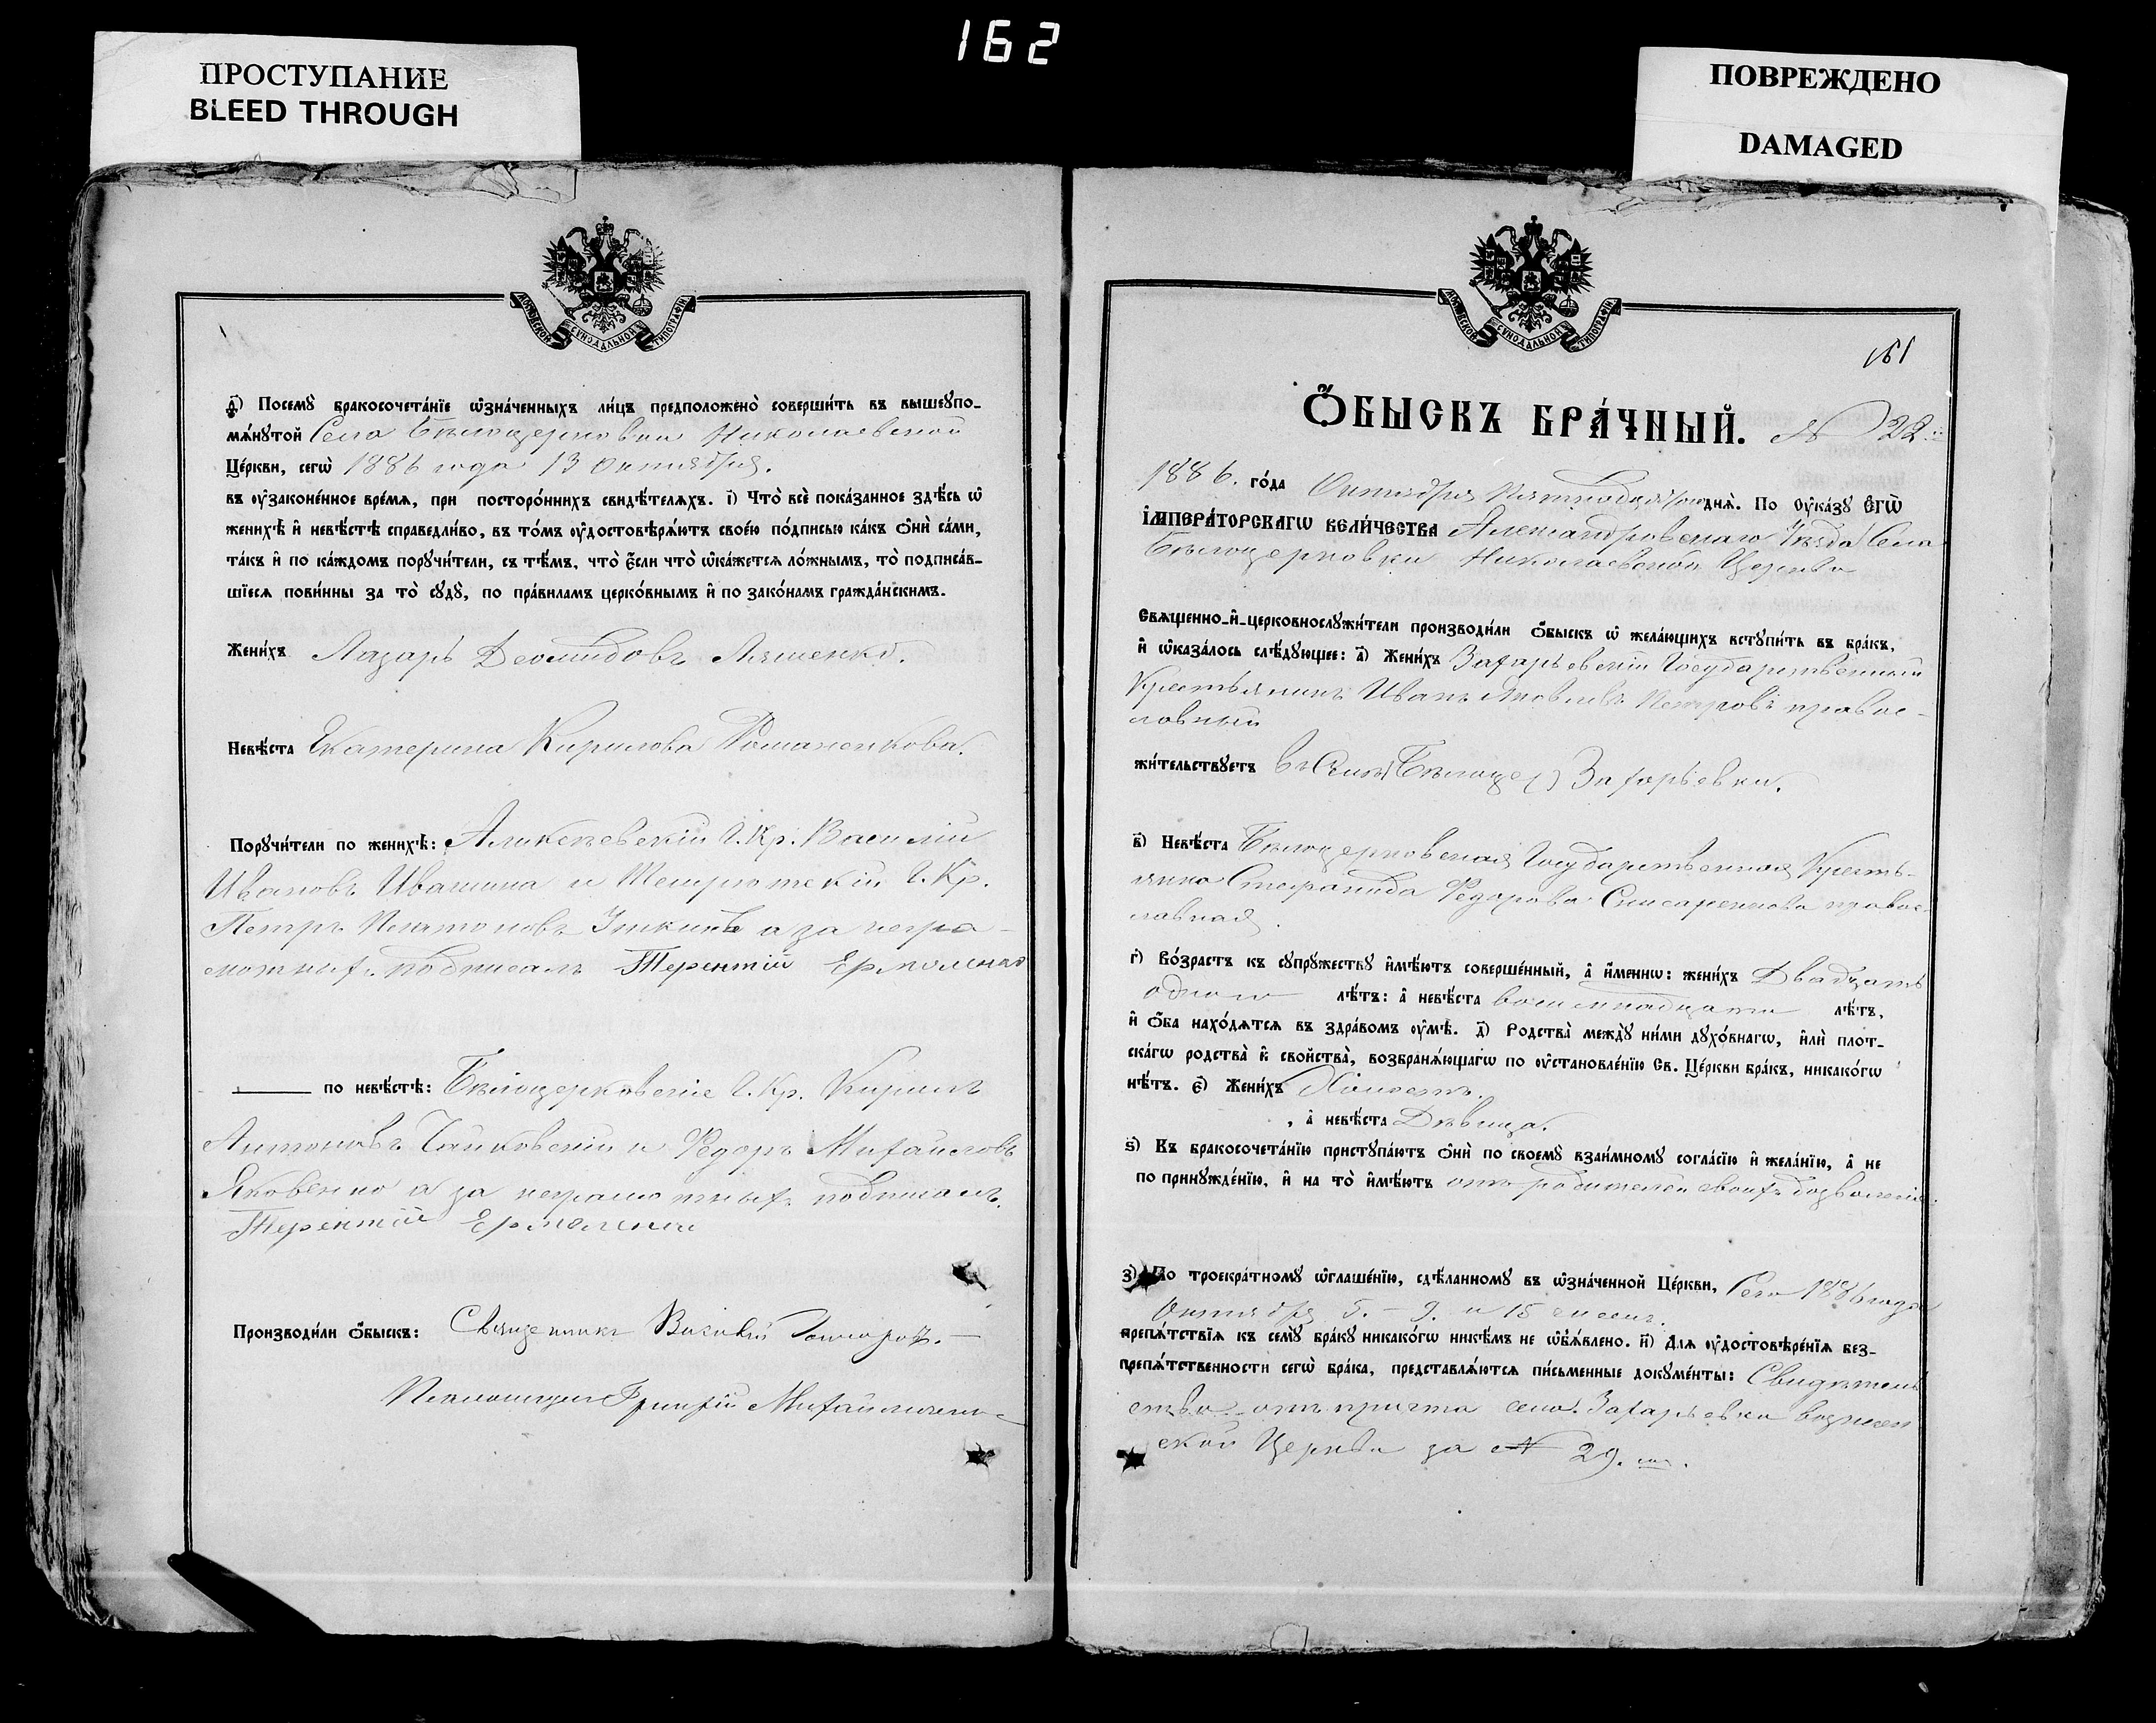 162
ПРОСТУПАНИЕ
BLEED THROUGH
ПОВРЕЖДЕНО
DAMAGED
МОСКОВСКОЙ СУНОДАЛЬНОЙ ТИПОГРАФІИ
д҃і) Посемꙋ̀ бракосочета́нїе ѡ҆зна́ченныхъ ли́цъ предположено̀ соверши́ть въ вышеꙋпо-
мѧ́нꙋтой Села Бѣлоцерковки Николаевской
Це́ркви, сегѡ̀ 1886 года 13 Октября.
въ ᲂу҆законе́нное вре́мѧ, при посторо́ннихъ свидѣ́телѧхъ. і҃) Что̀ всѐ пока́занное здѣ́сь ѡ҆
женихѣ̀ и҆ невѣ́стѣ справедли́во, въ то́мъ ᲂу҆достовѣрѧ́ютъ свое́ю по́дписью ка́къ ѻ҆нѝ са́ми,
та́къ и҆ по ка́ждомъ порꙋчи́тели, съ тѣ́мъ, что̀ є҆́сли что̀ ѡ҆ка́жетсѧ ло́жнымъ, то̀ подписа́в-
шїесѧ пови́нны за то̀ сꙋдꙋ̀, по пра́виламъ церко́внымъ и҆ по зако́намъ гражда́нскимъ.
Жени́хъ Лазарь Деомидовъ Ляшенко.
Невѣ́ста Екатерина Кирилова Романенкова.
Порꙋчи́тели по женихѣ̀: Алексѣевскій Г. Кр. Василій
Ивановъ Ивашина и Темрютскій Г. Кр.
Петръ Платоновъ а за негра-
мотныхъ подписалъ Терентій Ермоленко
по невѣ́стѣ: Бѣлоцерковскіе Г. Кр. Кирилъ
Антоновъ Чайковскій и Федоръ Михайловъ
Яковенко а за неграмотныхъ подписалъ
Терентій Ермоленко
Производи́ли ѻ҆́быскъ: Священникъ
Псаломщикъ Михайличенко
МОСКОВСКОЙ СУНОДАЛЬНОЙ ТИПОГРАФІИ
161
Ѻ҆́БЫСКЪ БРА́ЧНЫЙ. № 22
1886. го́да Октября Пятнадцатаго днѧ̀. По ᲂу҆ка́зꙋ Є҆гѡ̀
І҆МПЕРА́ТОРСКАГѠ ВЕЛИ́ЧЕСТВА Александровскаго Уѣзда Села
Бѣлоцерковки Николаевской Церкви
Свѧщенно-и҆-церковнослꙋжи́тели производи́ли ѻ҆́быскъ ѡ҆ жела́ющихъ встꙋпи́ть въ бра́къ,
и҆ ѡ҆каза́лось слѣ́дꙋющее: а҃) Жени́хъ Захарьевскій Государственный
Крестьянинъ Иванъ Яковлевъ Петровъ правос-
лавный
жи́тельствꙋетъ въ Захарьевки.
в҃) Невѣ́ста Бѣлоцерковская Государственная Кресть-
янка Стефанида Федорова правос-
лавная.
г҃) Во́зрастъ къ сꙋпрꙋ́жествꙋ и҆мѣ́ютъ соверше́нный, а҆ и҆́меннѡ: жени́хъ Двадцать
одного лѣ́тъ: а҆ невѣ́ста восемнадцати лѣ́тъ,
и҆ ѻ҆́ба нахо́дѧтсѧ въ здра́вомъ ᲂу҆мѣ̀. д҃) Родства̀ междꙋ̀ ни́ми дꙋхо́внагѡ, и҆лѝ плот-
ска́гѡ родства̀ и҆ свойства̀, возбранѧ́ющагѡ по ᲂу҆становле́нїю Св. Це́ркви бра́къ, никако́гѡ
нѣ́тъ. є҃) Жени́хъ Холостъ.
, а҆ невѣ́ста Дѣвица.
ѕ҃) Къ бракосочета́нїю пристꙋпа́ютъ ѻ҆нѝ по своемꙋ̀ взаи́мномꙋ согла́сїю и҆ жела́нїю, а҆ не
по принꙋжде́нїю, и҆ на то̀ и҆мѣ́ютъ отъ родителей своихъ дозволеніе.
з҃) По троекра́тномꙋ ѡ҆глаше́нїю, сдѣ́ланномꙋ въ ѡ҆зна́ченной Це́ркви, Сего 1886 года
Октября 5. – 9. и 15 чиселъ.
препѧ́тствїѧ къ семꙋ̀ бра́кꙋ никако́гѡ никѣ́мъ не ѡ҆б̾ѧ́влено. и҃) Длѧ ᲂу҆достовѣре́нїѧ без-
препѧ́тственности сегѡ̀ бра́ка, представлѧ́ютсѧ пи́сьменные докꙋме́нты: Свидѣтель
ство отъ причта села Захарьевки вознесен
ской Церкви за № 29.